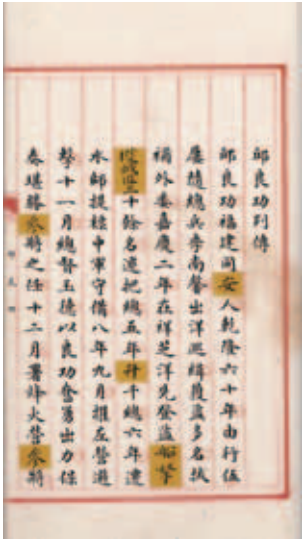 邱良功列傳
邱良功福建同安人乾隆六十年由行伍
屢隨總兵李南馨出洋巡緝獲盜多名拔
補外委嘉慶二年在祥芝洋見登盜船擊
十餘名遷把總五年升千總六年遷
水師提標中軍守備八年九月推左營遊
擊十一月總督玉德以良功奮勇出力保
奏堪勝參將之任十二月署烽火營參將